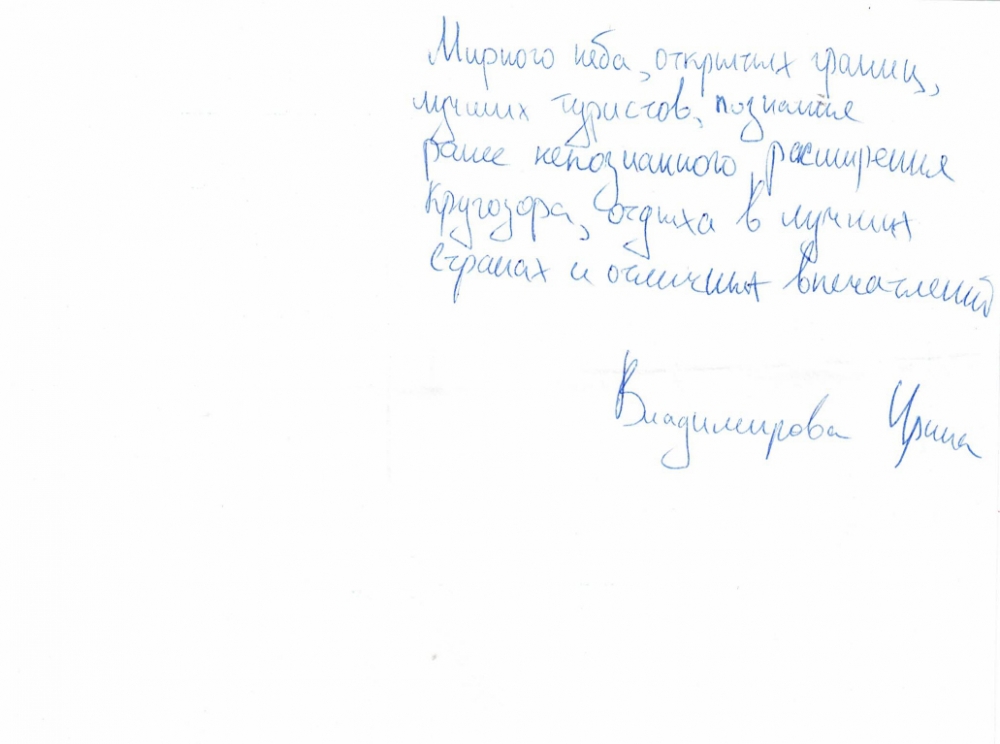 Мирного неба, открытых границ,
лучших туристов, познания
ранее непознанного, расширения
кругозора, отдыха в лучших
странах и отличных впечатлений
Владимирова Ирина